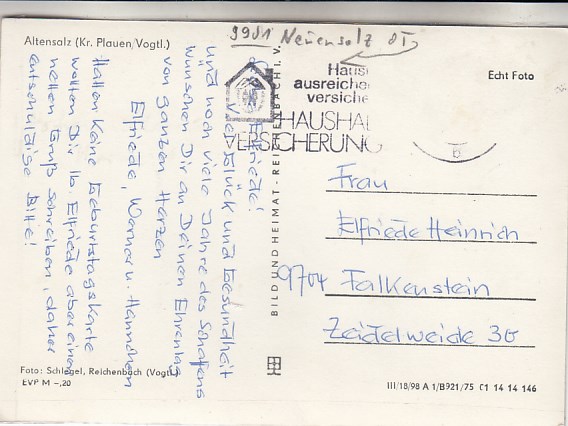 9951 Neuensalz OT
Altensalz (Kr. Plauen/Vogtl.)
Elfriede!
Viel Glück und Gesundheit
und noch viele Jahre des Schaffens
wünschen Dir an Deinem Ehrentag
von ganzen Herzen
Elfriede, Werner u. Hannchen
Hatten keine Geburtstagskarte
wollten Dir lb. Elfriede aber einen
netten Gruß schreiben, daher
entschuldige Bitte!
Foto: Schlegel, Reichenbach (Vogtl.)
EVP M –,20
BILD UND HEIMAT · REICHENBACH I. V.
ausreiche
versiche
HAUSHAL
VERSICHERUNG
Echt Foto
Frau
Elfriede Heinrich
9704 Falkenstein
Zeidelweide 30
III/18/98 A 1/B921/75 01 14 14 146